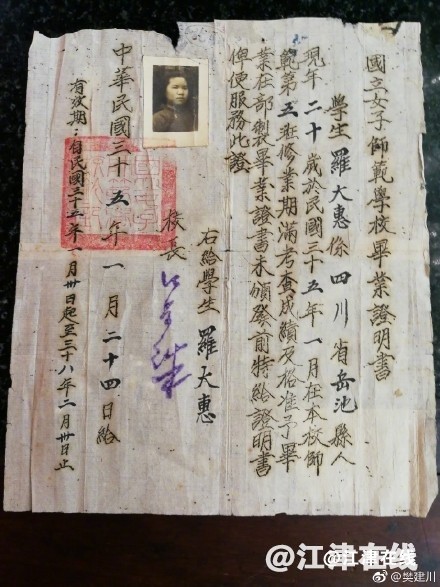 國立女子師範學校畢業證明書
學生羅大惠係四川省岳池縣人
現年二十歲於民國三十五年一月在本校師
範第五班修業期滿考查成績及格准予畢
業在部製畢業證書未頒發前特給證明書
俾便服務此證
右給學生羅大惠
校長
中華民國三十五年一月二十四日給
有效期：自民國三十五年一月卅日起至三十八年二月卅日止
@江津在线
@樊建川